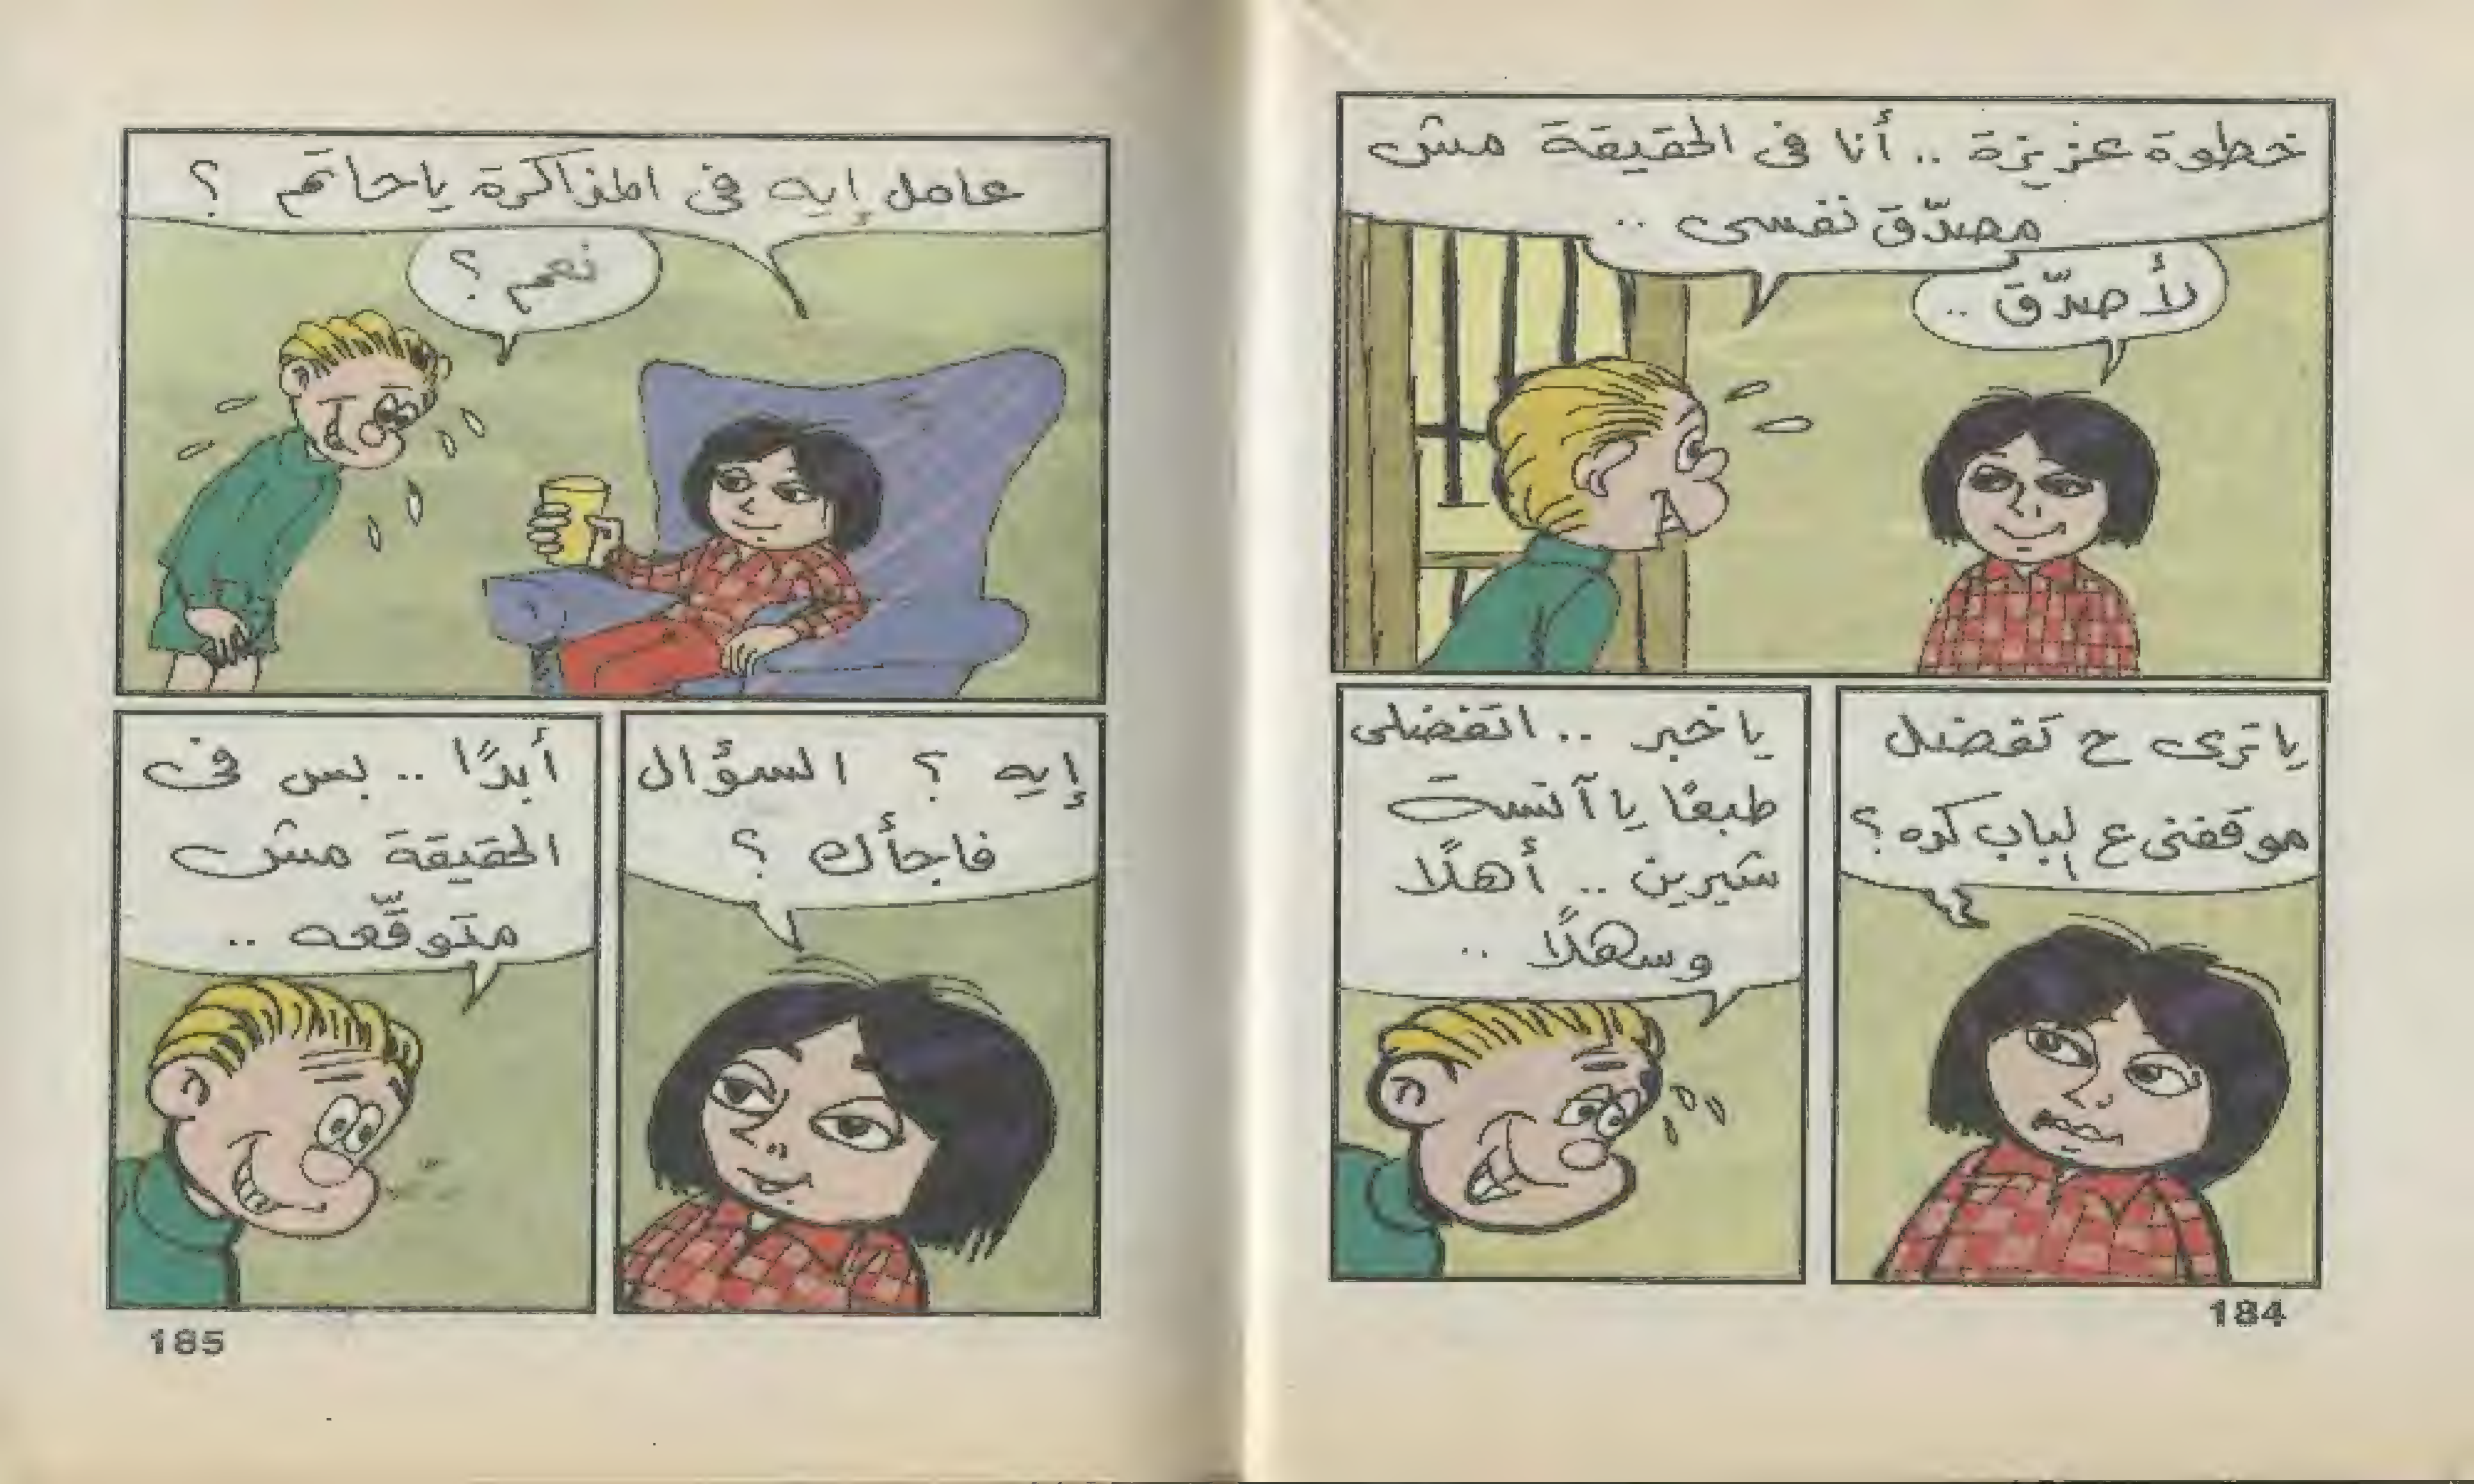 خطوة عزيزة .. أنا فى الحقيقة مش
مصدّق نفسى ..
لأ صدّق ..
يا ترى ح تفضل
موقفنى ع الباب كده ؟
يا خبر .. اتفضلى
طبعًا يا آنسة
شيرين .. أهلًا
وسهلًا ..
184
عامل إيه فى المذاكرة يا حاتم ؟
نعم ؟
إيه ؟ السؤال
فاجأك ؟
أبدًا .. بس فى
الحقيقة مش
متوقّعه ..
185